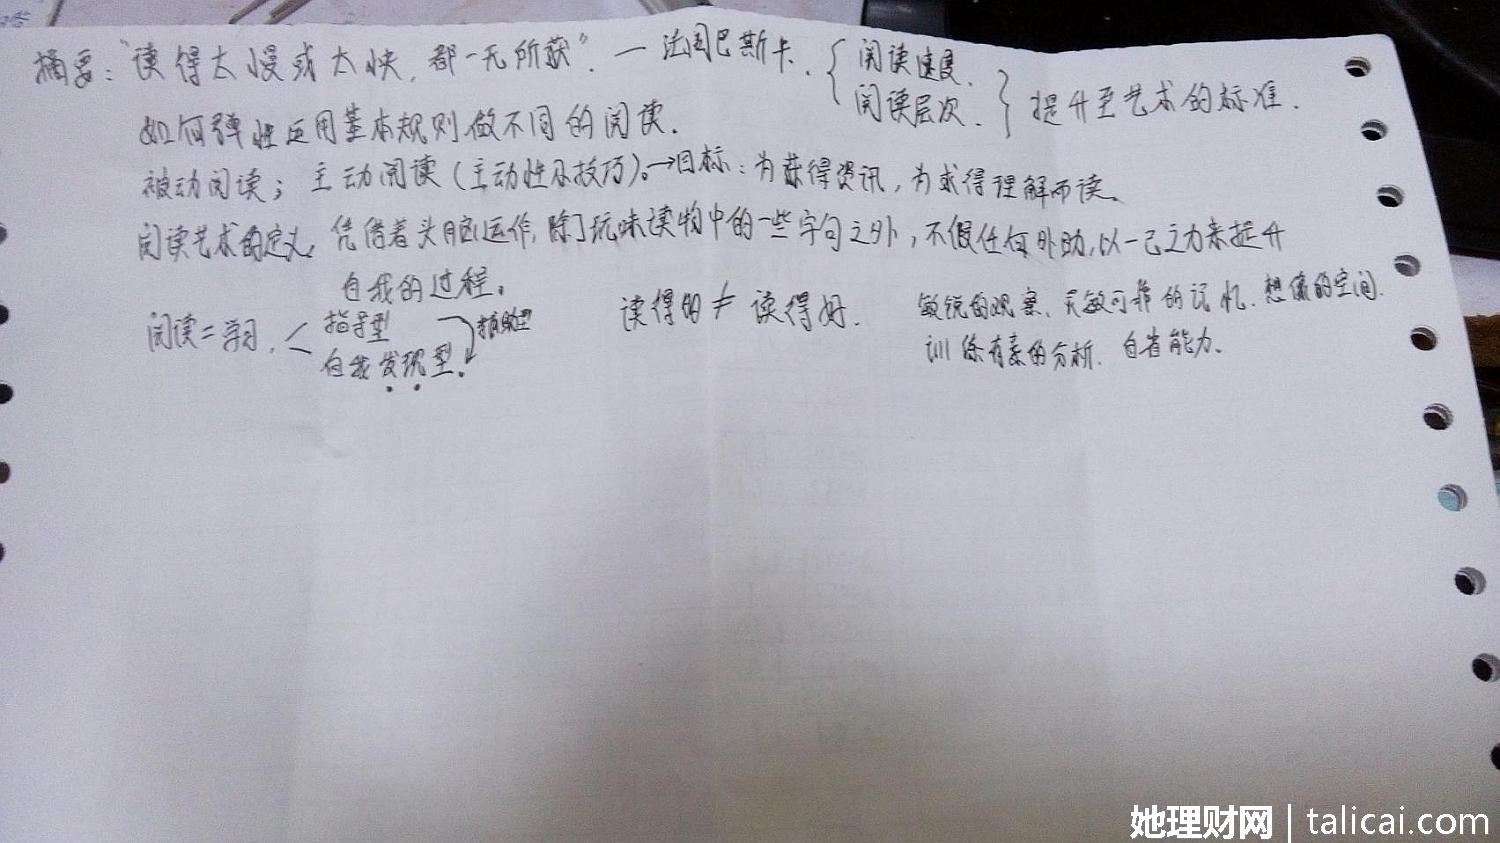 摘要：“读得太慢或太快，都一无所获”．—法国巴斯卡．{阅读速度、阅读层次．}提升至艺术的标准．
如何弹性运用基本规则做不同的阅读．
被动阅读；主动阅读（主动性及技巧）。→目标：为获得资讯，为求得理解而读。
阅读艺术的定义。凭借着头脑运作，除了玩味读物中的一些字句之外，不假任何外助，以一己之力来提升
自我的过程。
阅读=学习．< 指导型 辅助型
自我发现型．
读得的 ≠ 读得好．
敏锐的观察、灵敏可靠的记忆、想像的空间．
训练有素的分析．自省能力。
她理财网｜talicai.com